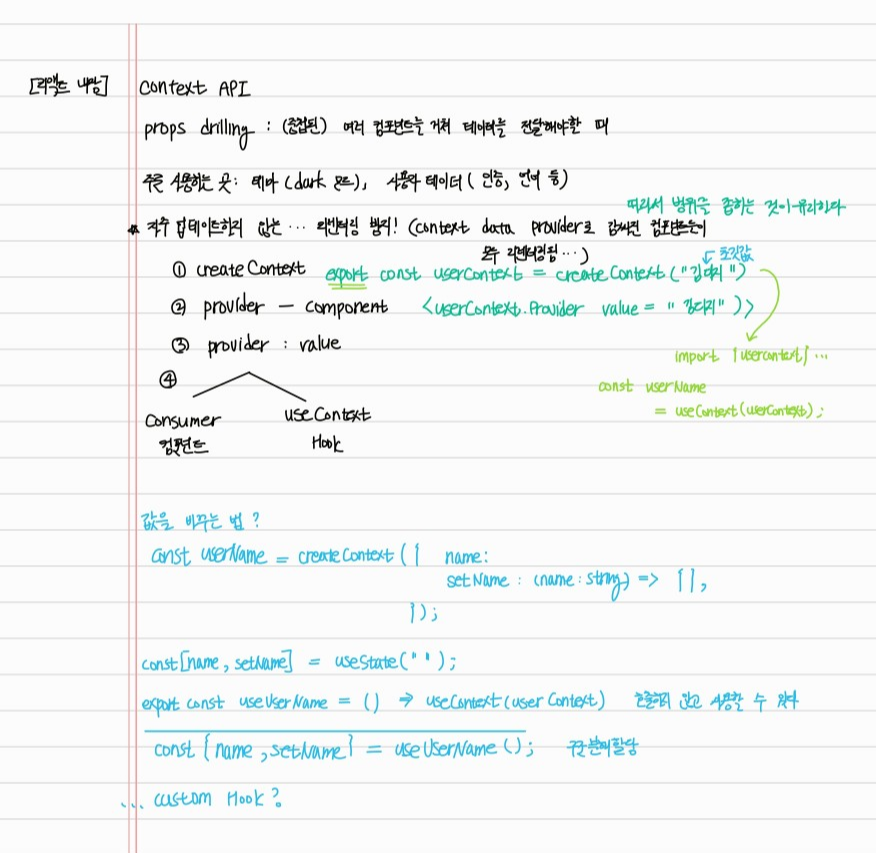 [리액트 내장] Context API
props drilling : (중첩된) 여러 컴포넌트를 거쳐 데이터를 전달해야할 때
주로 사용하는 곳: 테마 (dark 모드), 사용자 데이터 ( 인증, 언어 등)
따라서 범위를 좁히는 것이 유리하다
* 자주 업데이트하지 않는 ... 리렌더링 방지! (context data provider로 감싸진 컴포넌트들이
모두 리렌더링됨 ...)
초깃값
① createContext export const userContext = createContext("김다지")
② provider — component <userContext.Provider value = "김다지" )>
③ provider : value
import {usercontext} ...
④
const userName
= useContext(userContext);
Consumer 컴포넌트
useContext Hook
값을 바꾸는 법 ?
const userName = createContext ({ name:
setName : (name : string) => { },
});
const [name, setName] = useState(" ");
export const useUserName = () → useContext(userContext) 호출하지 않고 사용할 수 있다
const { name, setName} = useUserName (); 구조분해할당
... custom Hook ?